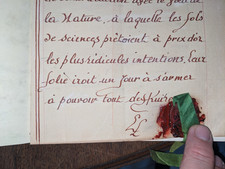 la Nature, à laquelle les fols
de sciences, prêtoient à prix d'or
les plus ridicules intentions, leur
folie iroit un jour à s'armer
à pouvoir tout